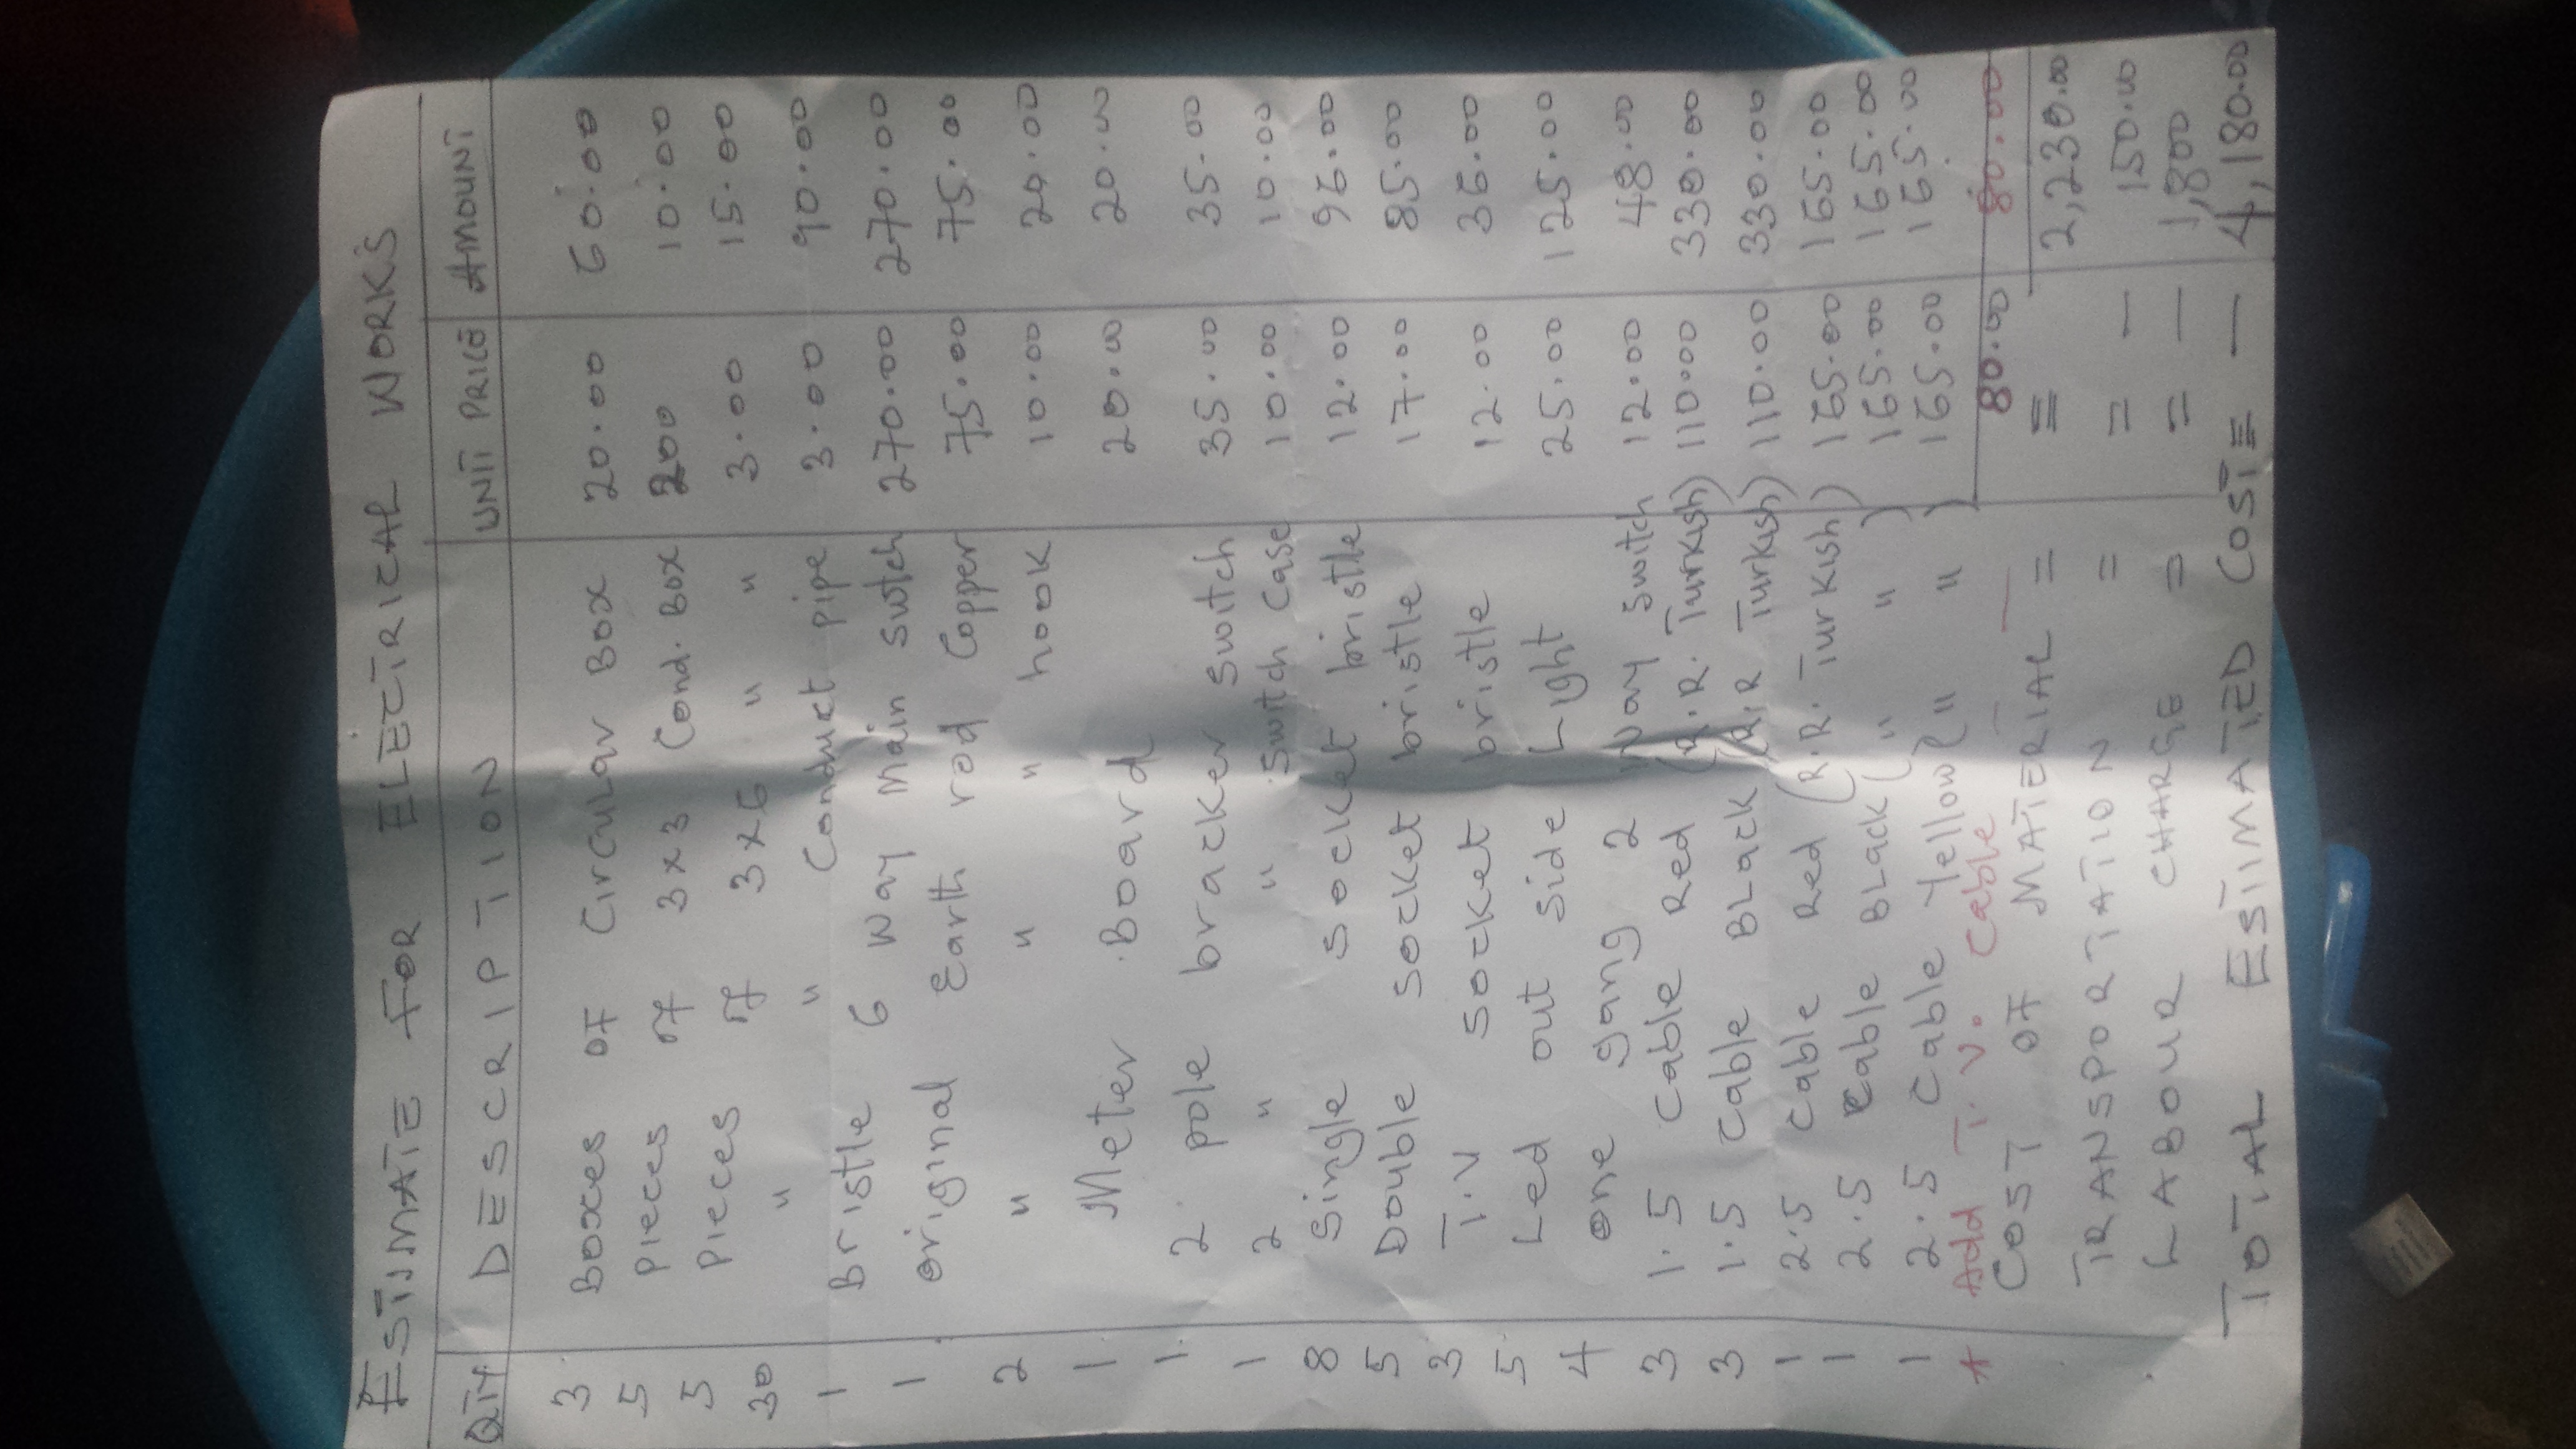 ESTIMATE FOR ELECTRICAL WORKS
QTY DESCRIPTION UNIT PRICE AMOUNT
3 Boxes OF Circular Box 20.00 60.00
5 Pieces of 3x3 Cond. Box 200 10.00
5 Pieces of 3x6 " " 3.00 15.00
30 " " Conduct pipe 3.00 90.00
1 Bristle 6 Way Main Swtch 270.00 270.00
1 original Earth rod Copper 75.00 75.00
2 " " " hook 10.00 20.00
1 Meter Board 20.00 20.00
1 2 pole bracker switch 35.00 35.00
1 2 " " Switch Case 10.00 10.00
8 Single Socket bristle 12.00 96.00
5 Double Socket bristle 17.00 85.00
3 T.V Socket bristle 12.00 36.00
5 Led out side Light 25.00 125.00
4 one gang 2 Way switch 12.00 48.00
3 1.5 Cable Red (R.R. Turkish) 110.00 330.00
3 1.5 Cable BLack (R.R Turkish) 110.00 330.00
1 2.5 Cable Red (R.R. Turkish) 165.00 165.00
1 2.5 Cable BLack (" ") 165.00 165.00
1 2.5 Cable Yellow (" ") 165.00 165.00
* Add T.V. Cable — — 80.00 80.00
COST OF MATERIAL = = 2,230.00
TRANSPORTATION = = — 150.00
LABOUR CHARGE = = — 1,800
TOTAL ESTIMATED COST = — 4,180.00